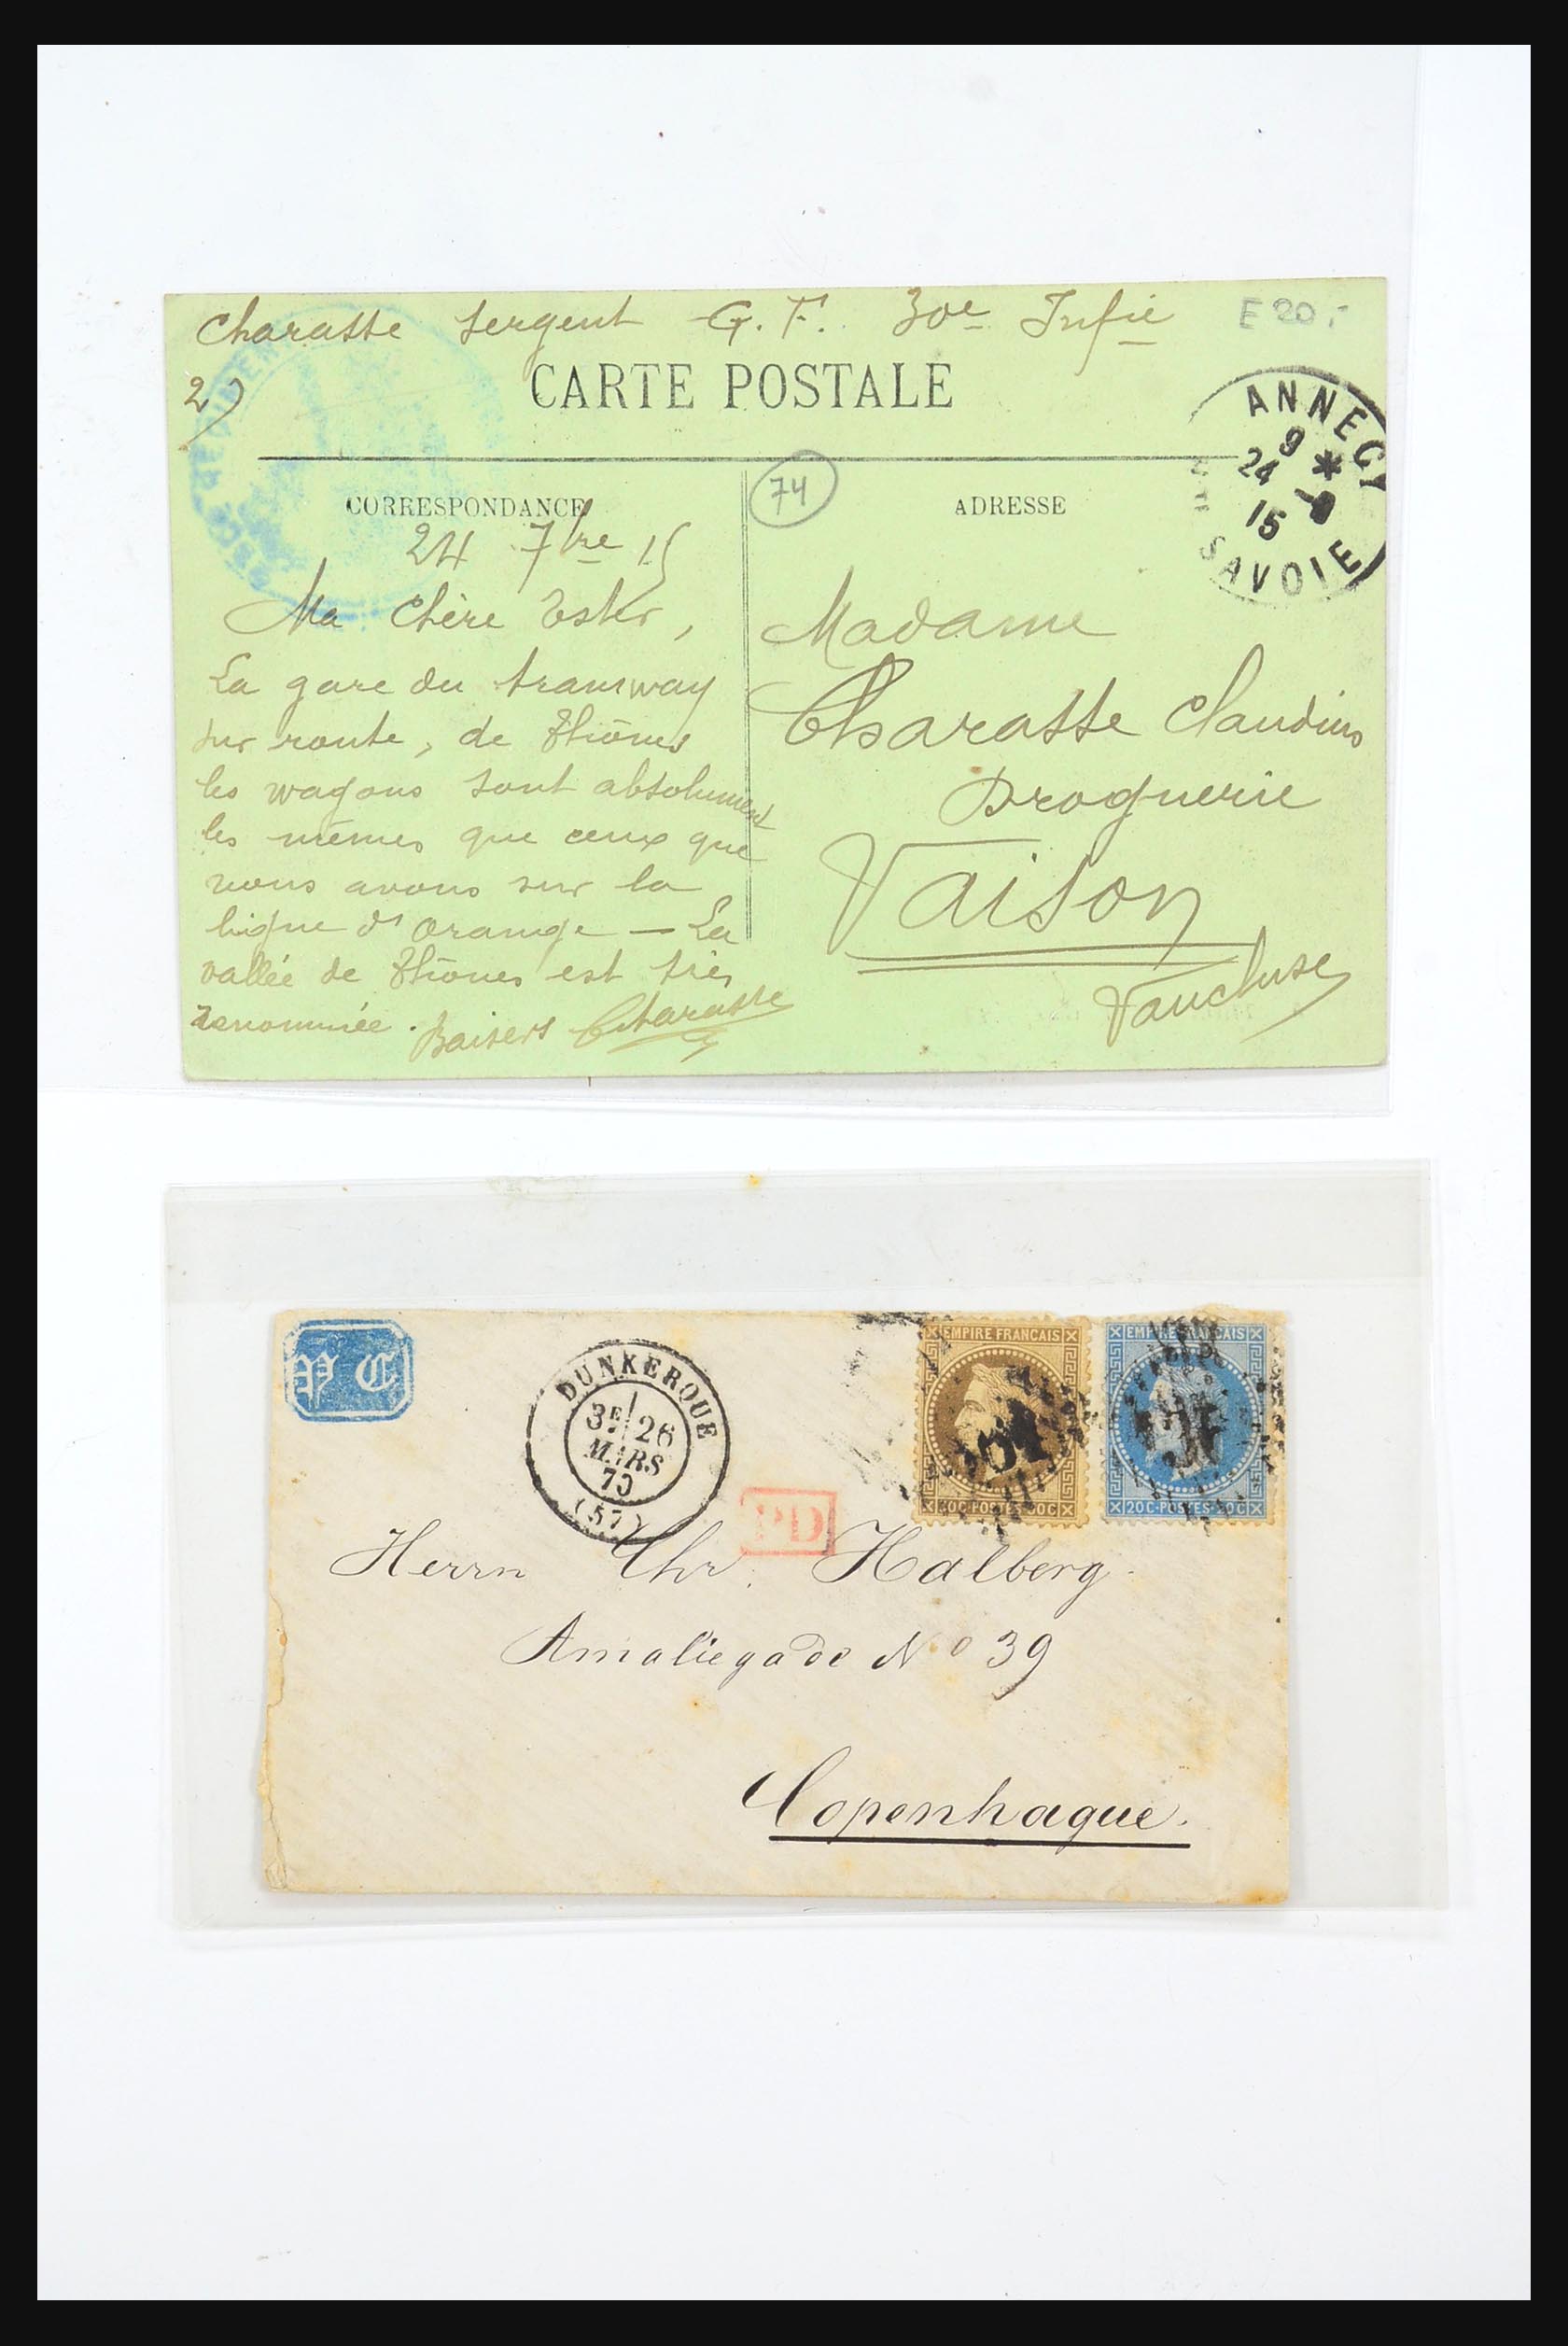 Charasse Sergent G. F. 30e Infie
E 20,-
2)
CARTE POSTALE
ANNECY
9 *
24 - 9
15
SAVOIE
CORRESPONDANCE
74
ADRESSE
24 7bre 15
Ma Chère Ester,
La gare du tramway
sur route, de Thônes
les wagons sont absolument
les mêmes que ceux que
nous avons sur la
ligne d'Orange — La
vallée de Thônes est très
renommée. Baisers Charasse
Madame
Charasse Claudius
Droguerie
Vaison
Vaucluse
PC
DUNKERQUE
3E 26
MARS
70
(57)
PD
EMPIRE FRANCAIS
EMPIRE FRANCAIS
20C·POSTES·20C
Herrn Chr. Halberg
Amaliegade No 39
Copenhague.